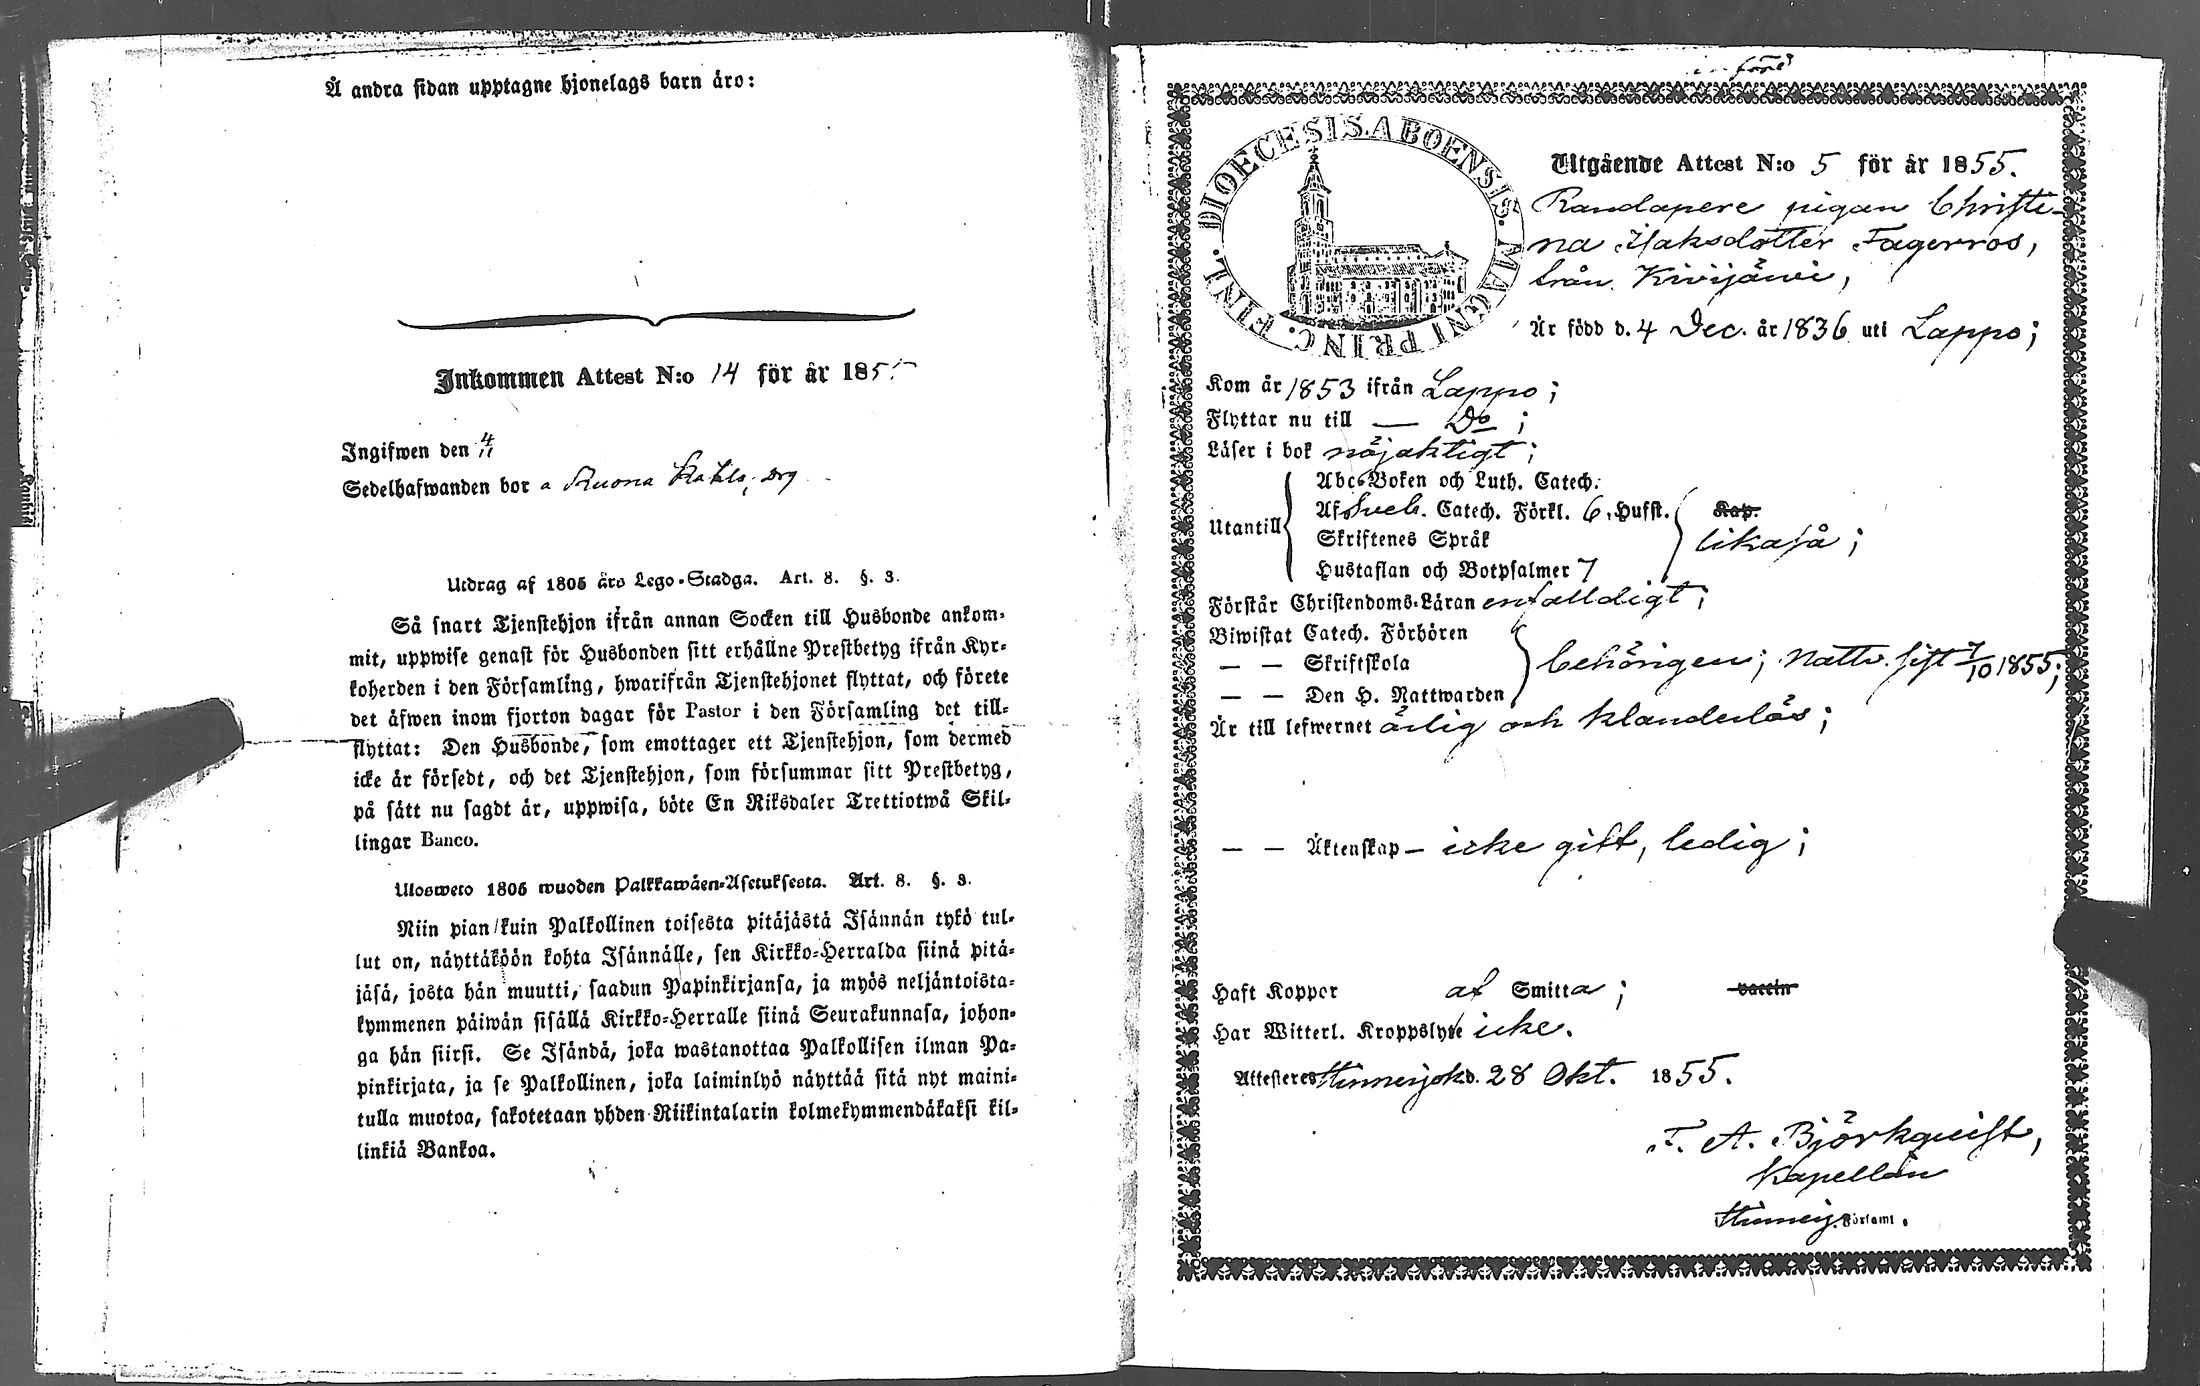 Å andra sidan upptagne hjonelags barn äro:
Inkommen Attest N:o 14 för år 185
Ingifwen den 4/11
Sedelhafwanden bor a Ruona
Utdrag af 1805 års Lego-Stadga. Art. 8. §. 3.
Så snart Tjenstehjon ifrån annan Socken till Husbonde ankom-
mit, uppwise genast för Husbonden sitt erhållne Prestbetyg ifrån Kyr-
koherden i den Församling, hwarifrån Tjenstehjonet flyttat, och förete
det äfwen inom fjorton dagar för Pastor i den Församling det till-
flyttat: Den Husbonde, som emottager ett Tjenstehjon, som dermed
icke är försedt, och det Tjenstehjon, som försummar sitt Prestbetyg,
på sätt nu sagdt är, uppwisa, böte En Riksdaler Trettiotwå Skil-
lingar Banco.
Ulosweto 1805 wuoden Palkkawäen-Asetuksesta. Art. 8. §. 3.
Niin pian kuin Palkollinen toisesta pitäjästä Isännän tykö tul-
lut on, näyttäköön kohta Isännälle, sen Kirkko-Herralda siinä pitä-
jäsä, josta hän muutti, saadun Papinkirjansa, ja myös neljäntoista-
kymmenen päiwän sisällä Kirkko-Herralle siinä Seurakunnasa, johon-
ga hän siirsi. Se Isändä, joka wastanottaa Palkollisen ilman Pa-
pinkirjata, ja se Palkollinen, joka laiminlyö näyttää sitä nyt maini-
tulla muotoa, sakotetaan yhden Riikintalarin kolmekymmendäkaksi kil-
linkiä Bankoa.
DIOECESIS. ABOENSIS. MAGNI PRINC. FINL.
Utgående Attest N:o 5 för år 1855.
Randapere pigan Christi-
na Isaksdotter Fagerros,
från Kivijärvi,
Är född d. 4 Dec. år 1836 uti Lappo;
Kom år 1853 ifrån Lappo;
Flyttar nu till — Do;
Läser i bok nöjaktigt;
Abc-Boken och Luth. Catech.
Utantill Af Sveb. Catech. Förkl. 6 Hufst. Kap.
Skriftenes Språk likaså;
Hustaflan och Botpsalmer 7
Förstår Christendoms-Läran enfalldigt;
Biwistat Catech. Förhören
— — Skriftskola behörigen; Nattv. sist 7/10 1855;
— — Den H. Nattwarden
Är till lefwernet ärlig och klanderlös;
— — Äktenskap – icke gift, ledig;
Haft Koppor af Smitta; vaccin
Har Witterl. Kroppslyte icke.
Attesteres Kinnerjok d. 28 Okt. 1855.
F. A. Björkqvist,
Kapellan
Församl.